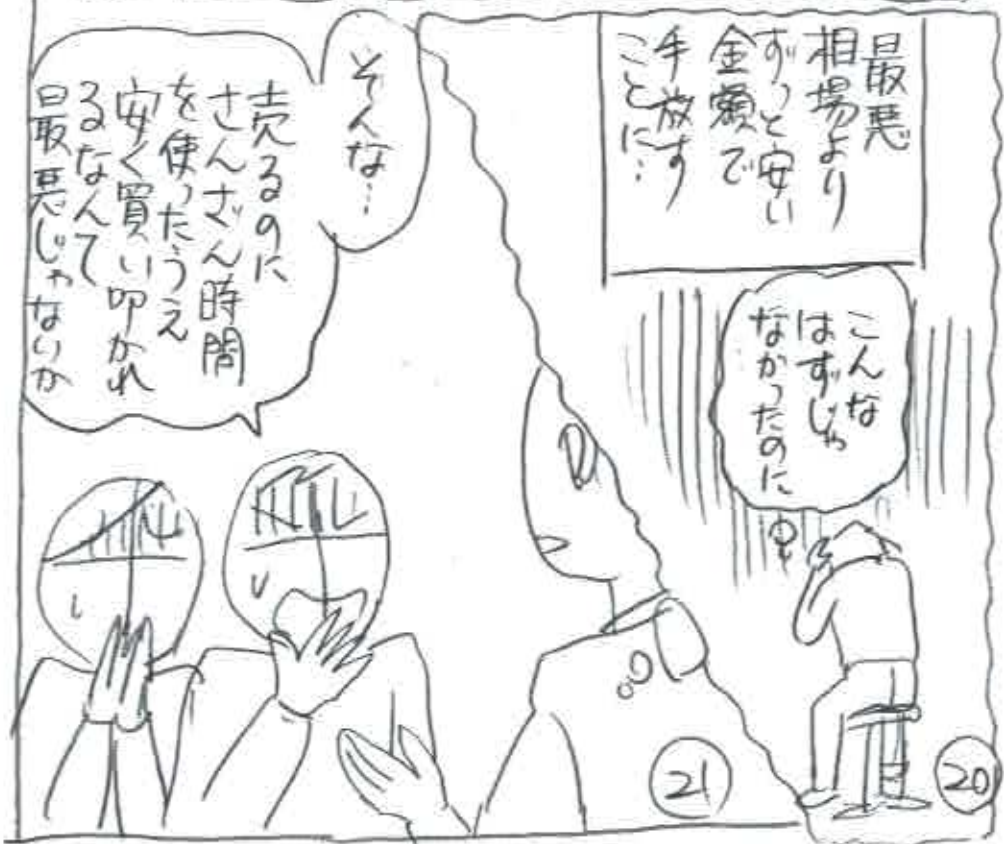 最悪
相場より
ずっと安い
金額で
手放す
ことに…
こんな
はずじゃ
なかったのに
20
そんな…
売るのに
さんざん時間
を使ったうえ
安く買い叩かれ
るなんて
最悪じゃないか
21